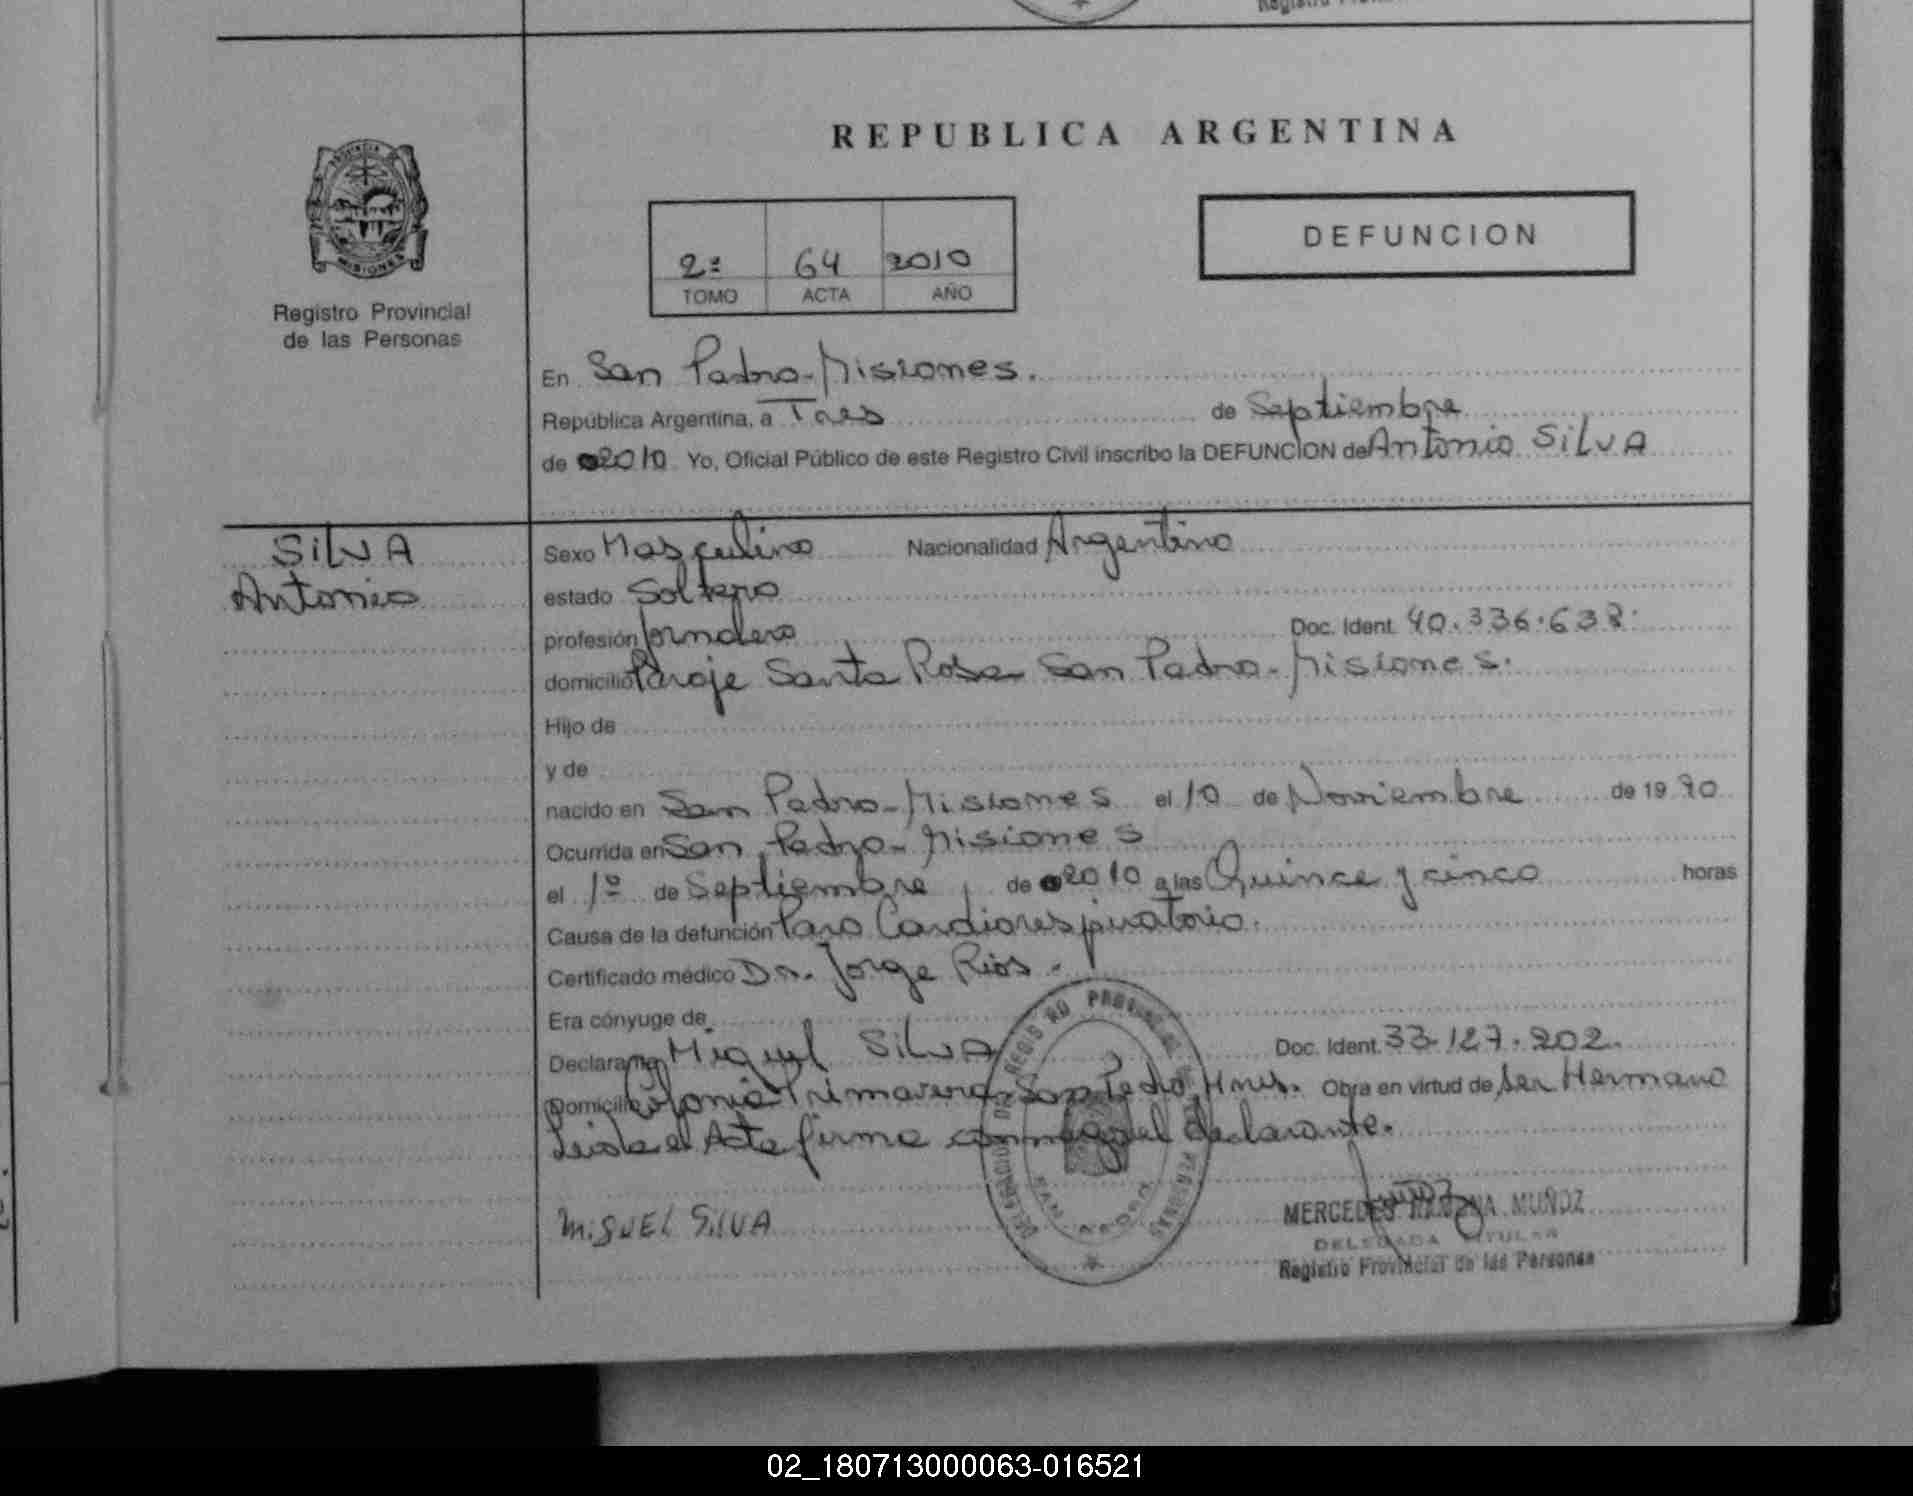 REPUBLICA ARGENTINA
PROVINCIA
MISIONES
Registro Provincial
de las Personas
2º 64 2010
TOMO ACTA AÑO
DEFUNCION
En San Pedro - Misiones.
República Argentina, a Tres de Septiembre
de 2010 Yo, Oficial Público de este Registro Civil inscribo la DEFUNCION de Antonio SilvA
SilvA
Antonio
Sexo Masculino Nacionalidad Argentino
estado Soltero
profesión Jornalero Doc. Ident. 40.336.638.
domicilio Paraje Santa Rosa San Pedro - Misiones.
Hijo de
y de
nacido en San Pedro - Misiones el 10 de Noviembre de 19 90
Ocurrida en San Pedro - Misiones
el 1º de Septiembre de 2010 a las Quince y cinco horas
Causa de la defunción Paro Cardiorespiratorio.
Certificado médico Dr. Jorge Rios.
Era cónyuge de
Declarang Miguel SilvA Doc. Ident. 33.127.202.
Domicilio Colonia Primavera San Pedro, Mnes. Obra en virtud de ser Hermano
Leida el Acta firma conmigo el declarante.
MiguEL SilvA
MERCEDES RAMONA MUÑOZ
DELEGADA TITULAR
Registro Provincial de las Personas
02_180713000063-016521